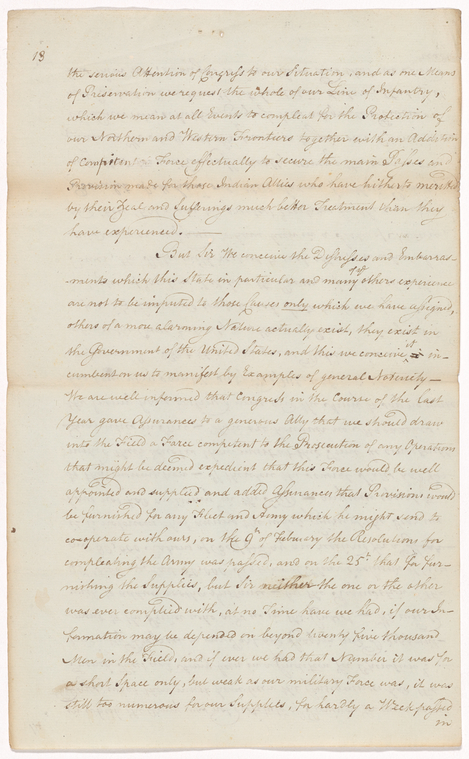 13
the serious Attention of Congress to our Situation, and as one Means
of Preservation we request the whole of our Line of Infantry,
which we mean at all Events to compleat for the Protection of
our Northern and Western Frontiers together with an Addition
of Competent Force effectually to secure the main Passes and
Provision made for those Indian Allies who have hitherto merited
by their Zeal and Sufferings much better Treatment than they
have experienced. —
But Sir We conceive the Distresses and Embarras-
ments which this State in particular and many of the others experience
are not to be imputed to those Causes only which we have assigned,
others of a more alarming Nature actually exist, they exist in
the Government of the United States, and this we conceive it in-
cumbent on us to manifest by Examples of general Notoriety —
We are well informed that Congress in the Course of the last
Year gave Assurances to a generous Ally that we should draw
into the Field a Force competent to the Prosecution of any Operations
that might be deemed expedient that this Force would be well
appointed and supplied and added Assurances that Provisions would
be furnished for any Fleet and Army which he might send to
co-operate with ours, on the 9th of February the Resolutions for
compleating the Army was passed, and on the 25th that for fur-
nishing the Supplies, but Sir neither the one or the other
was ever complied with, at no Time have we had, if our In-
formation may be depended on beyond twenty five thousand
Men in the Field, and if ever we had that Number it was for
a short Space only, but weak as our military Force was, it was
still too numerous for our Supplies, for hardly a Week passed
in